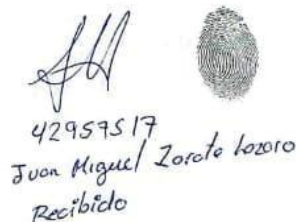 42957517
Juan Miguel Zarate Lozoro
Recibido